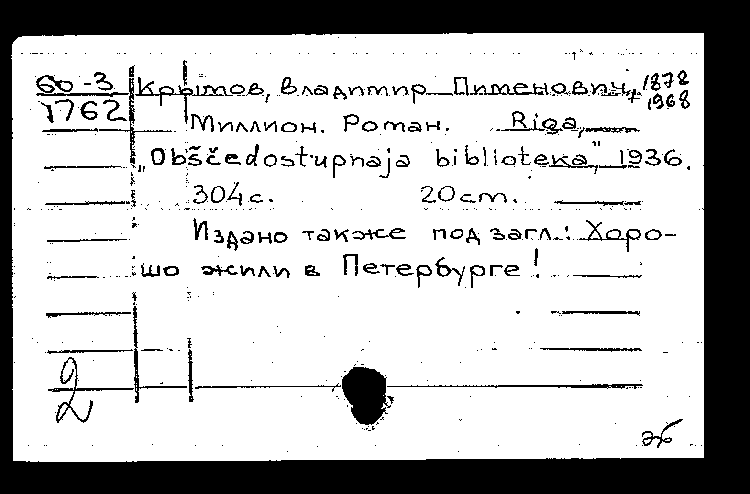 60-3 Крымов, Владимир Пименович, 1878
1762 + 1968
Миллион. Роман. Riga,
„Obščedostupnaja biblioteka", 1936.
304 с. 20 cm.
Издано также под загл.: Хоро-
шо жили в Петербурге!
2